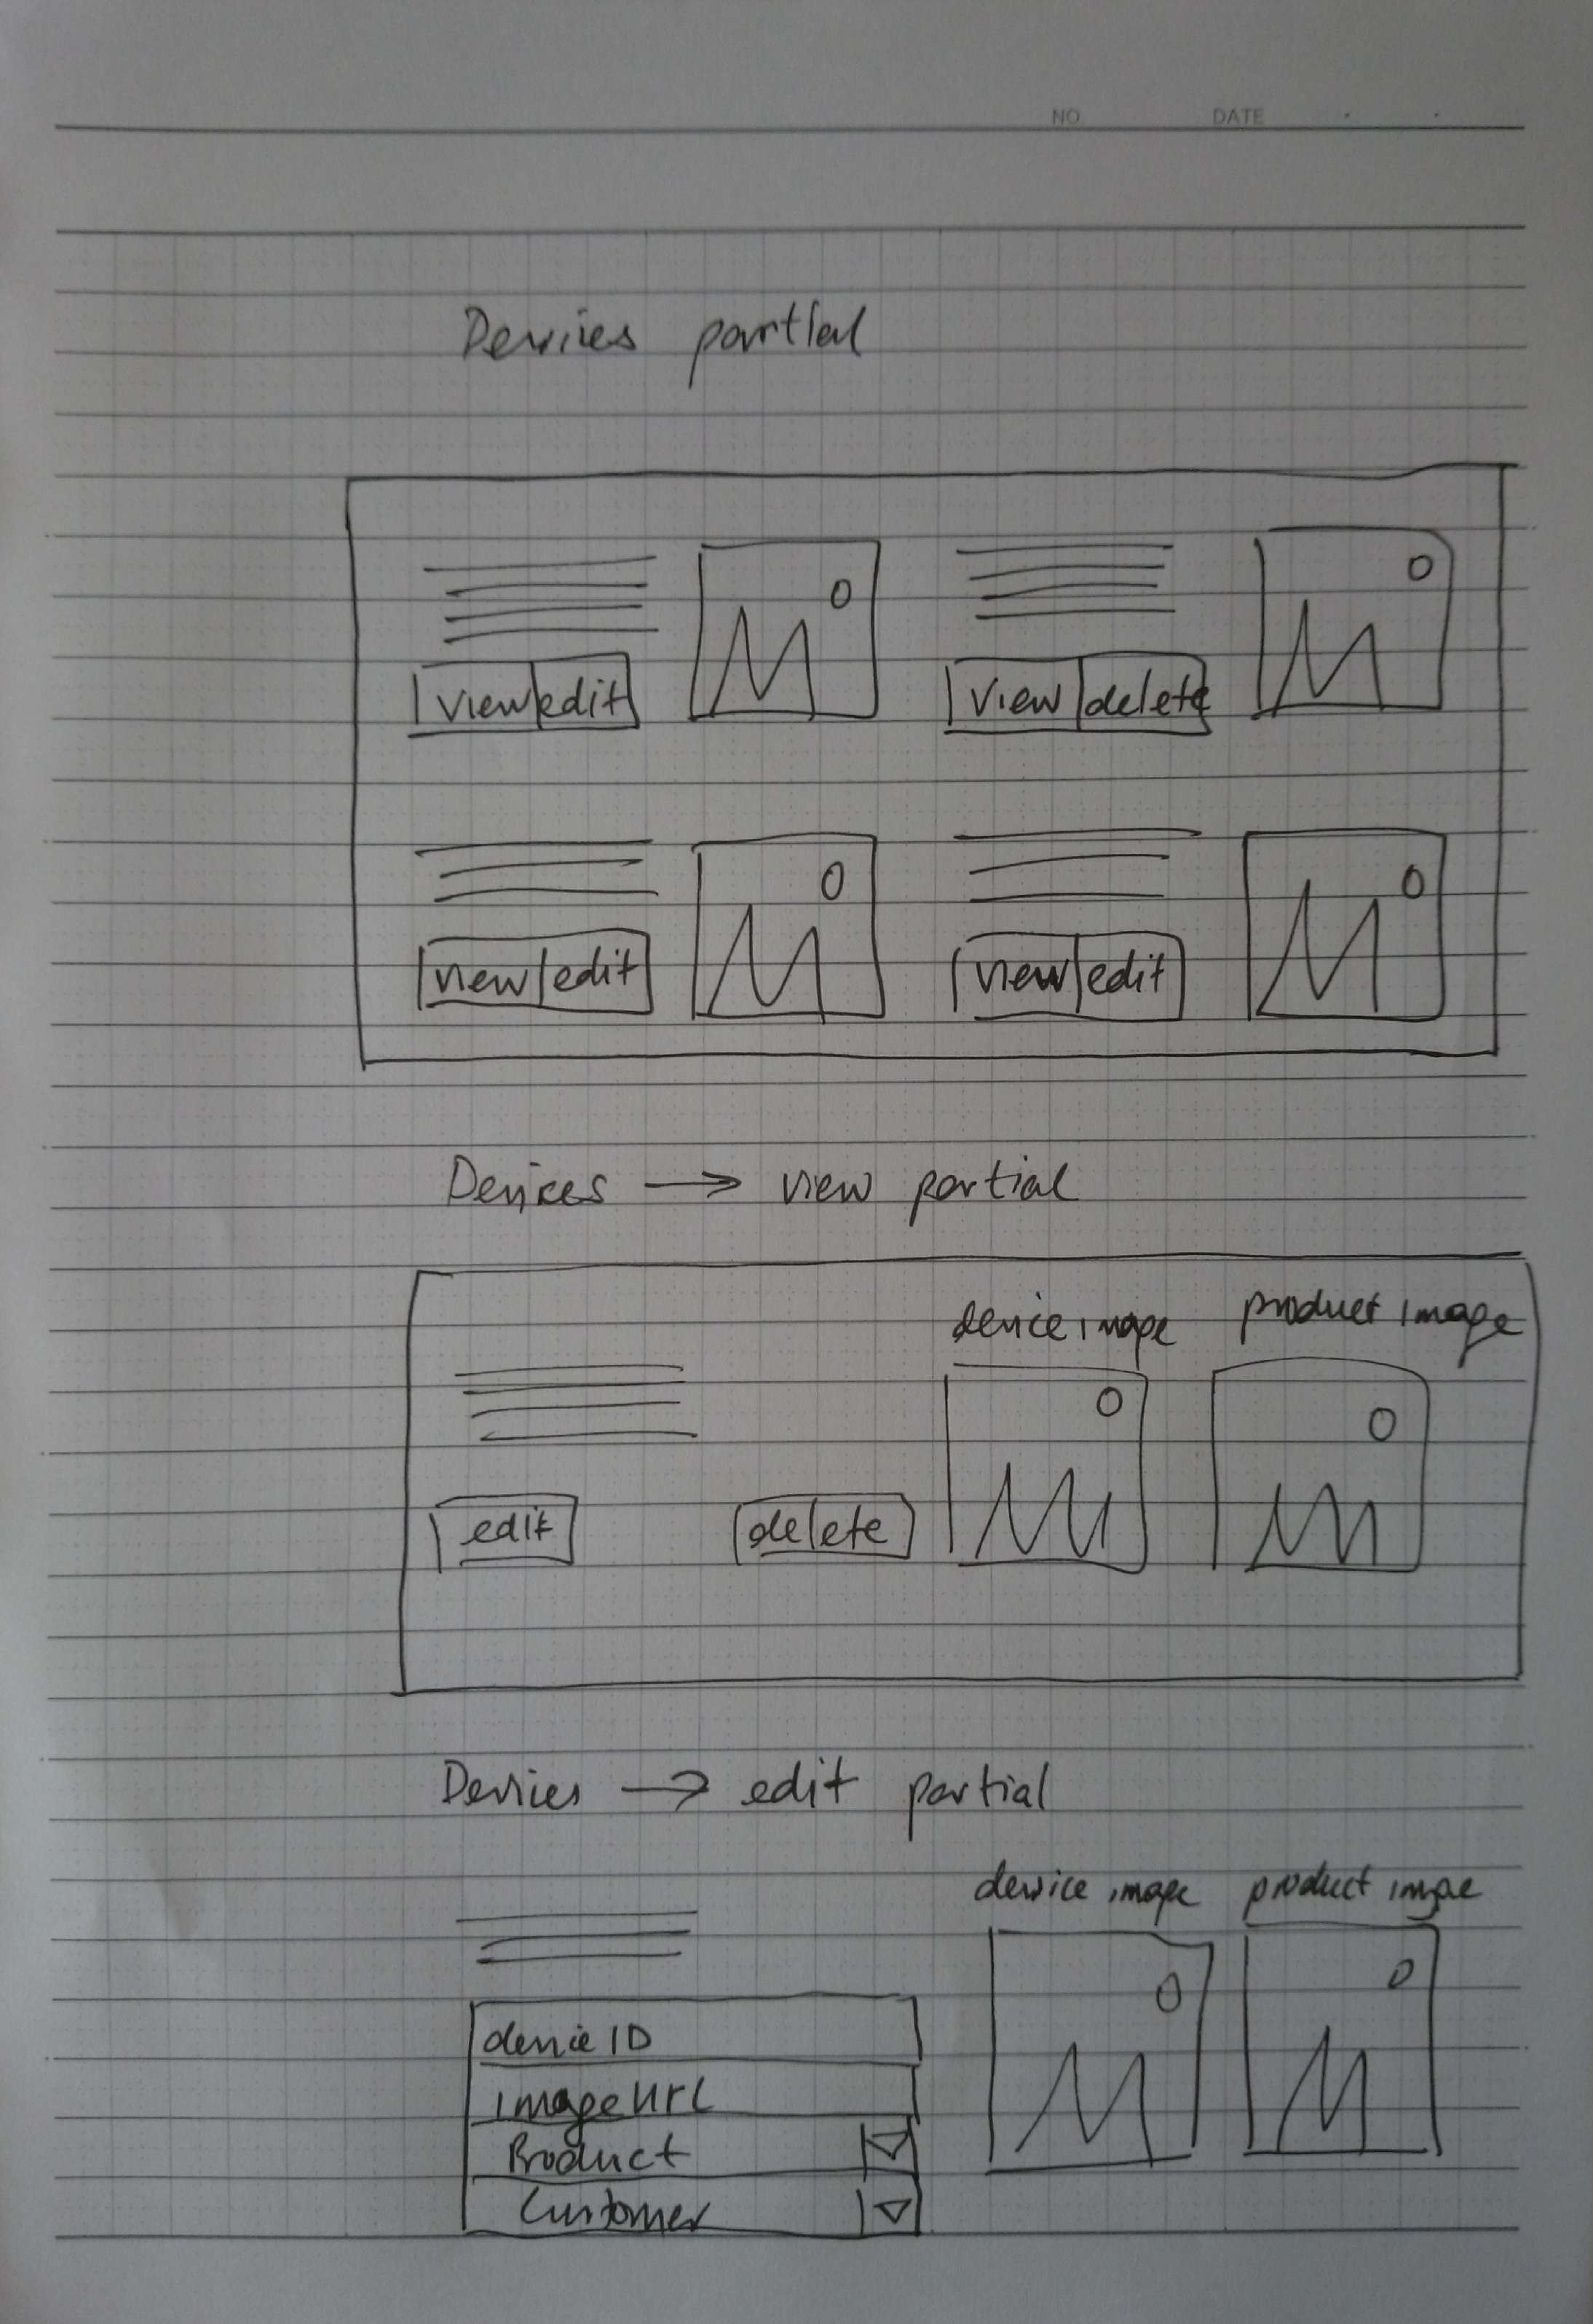 NO DATE
Devices partial
view edit view delete
view edit view edit
Devices → view partial
device image product image
edit delete
Devices → edit partial
device image product image
device ID
imageUrl
Product
Customer